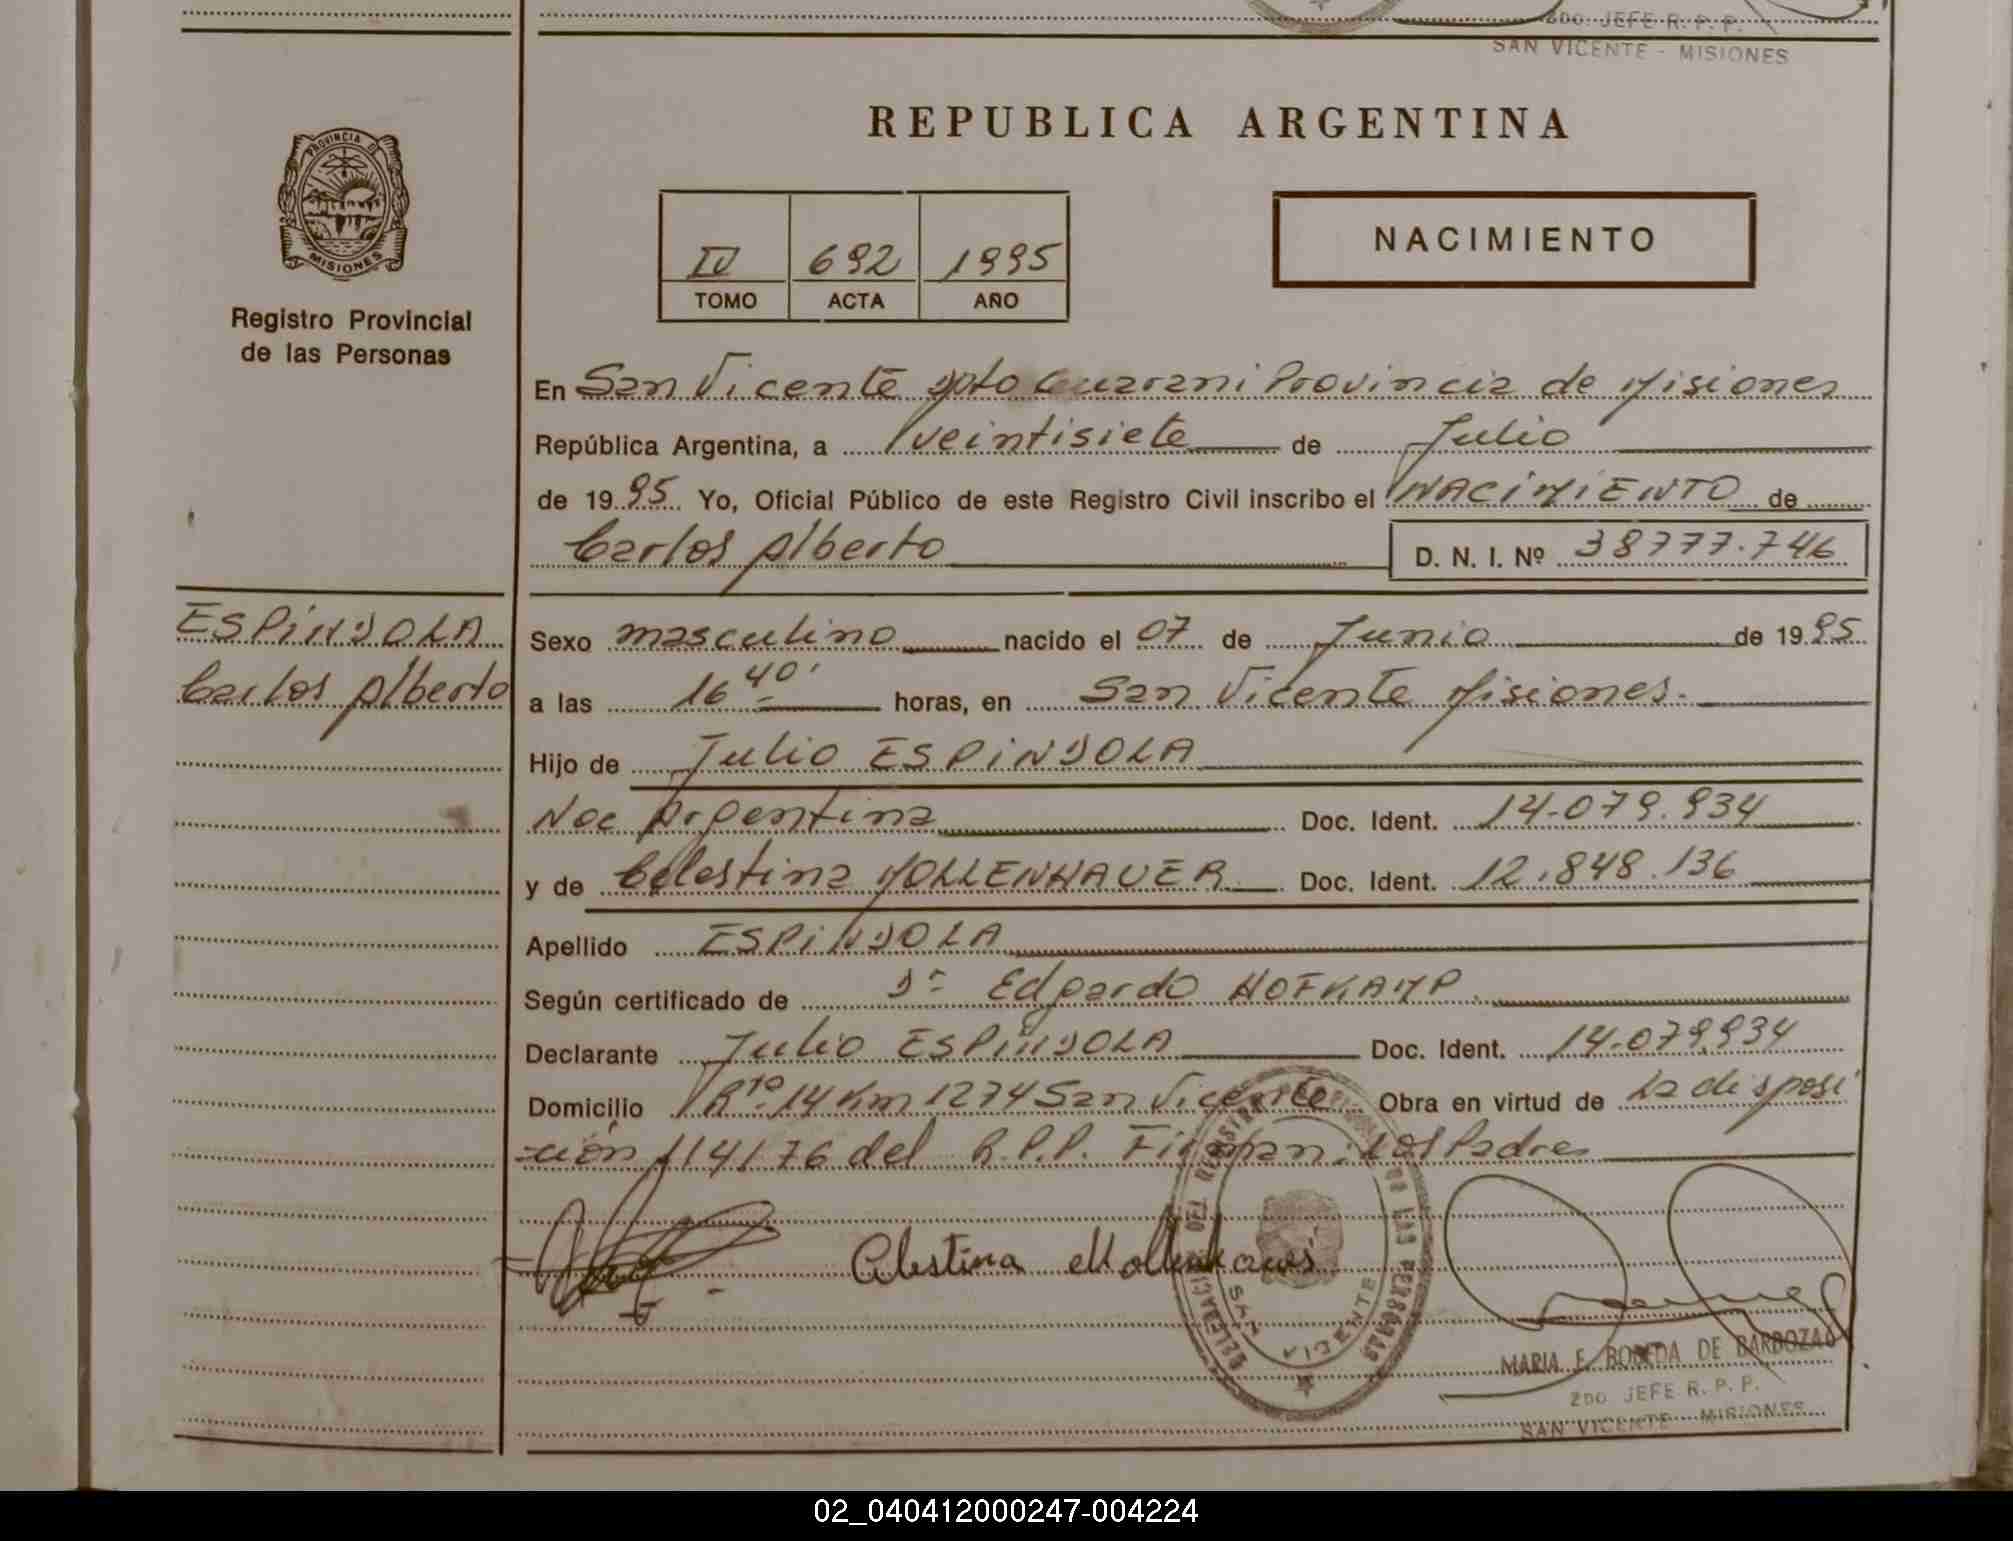 2DO. JEFE R. P. P.
SAN VICENTE - MISIONES
PROVINCIA DE
MISIONES
Registro Provincial
de las Personas
REPUBLICA ARGENTINA
IV 692 1995
TOMO ACTA AÑO
NACIMIENTO
En San Vicente Dpto Guarani Provincia de Misiones
República Argentina, a veintisiete de Julio
de 1995 Yo, Oficial Público de este Registro Civil inscribo el NACIMIENTO de
Carlos Alberto D. N. I. Nº 38777.746
ESPÍNDOLA
Carlos Alberto
Sexo masculino nacido el 07 de Junio de 1995
a las 16 40' horas, en San Vicente Misiones.
Hijo de Julio ESPÍNDOLA
Nac Argentina Doc. Ident. 14.079.934
y de Celestina MOLLENHAUER Doc. Ident. 12.848.136
Apellido ESPÍNDOLA
Según certificado de Dr Edgardo HOFKAMP.
Declarante Julio ESPÍNDOLA Doc. Ident. 14.079.934
Domicilio Rta. 14 Km 1274 San Vicente Obra en virtud de La disposi
ción 114/76 del R.P.P. Firman: Los Padres
Celestina Mollenhauer
DELEGACION DEL REGISTRO PROVINCIAL DE LAS PERSONAS
SAN VICENTE
MARIA E. BOBEDA DE BARBOZA
2DO. JEFE R. P. P.
SAN VICENTE - MISIONES
02_040412000247-004224